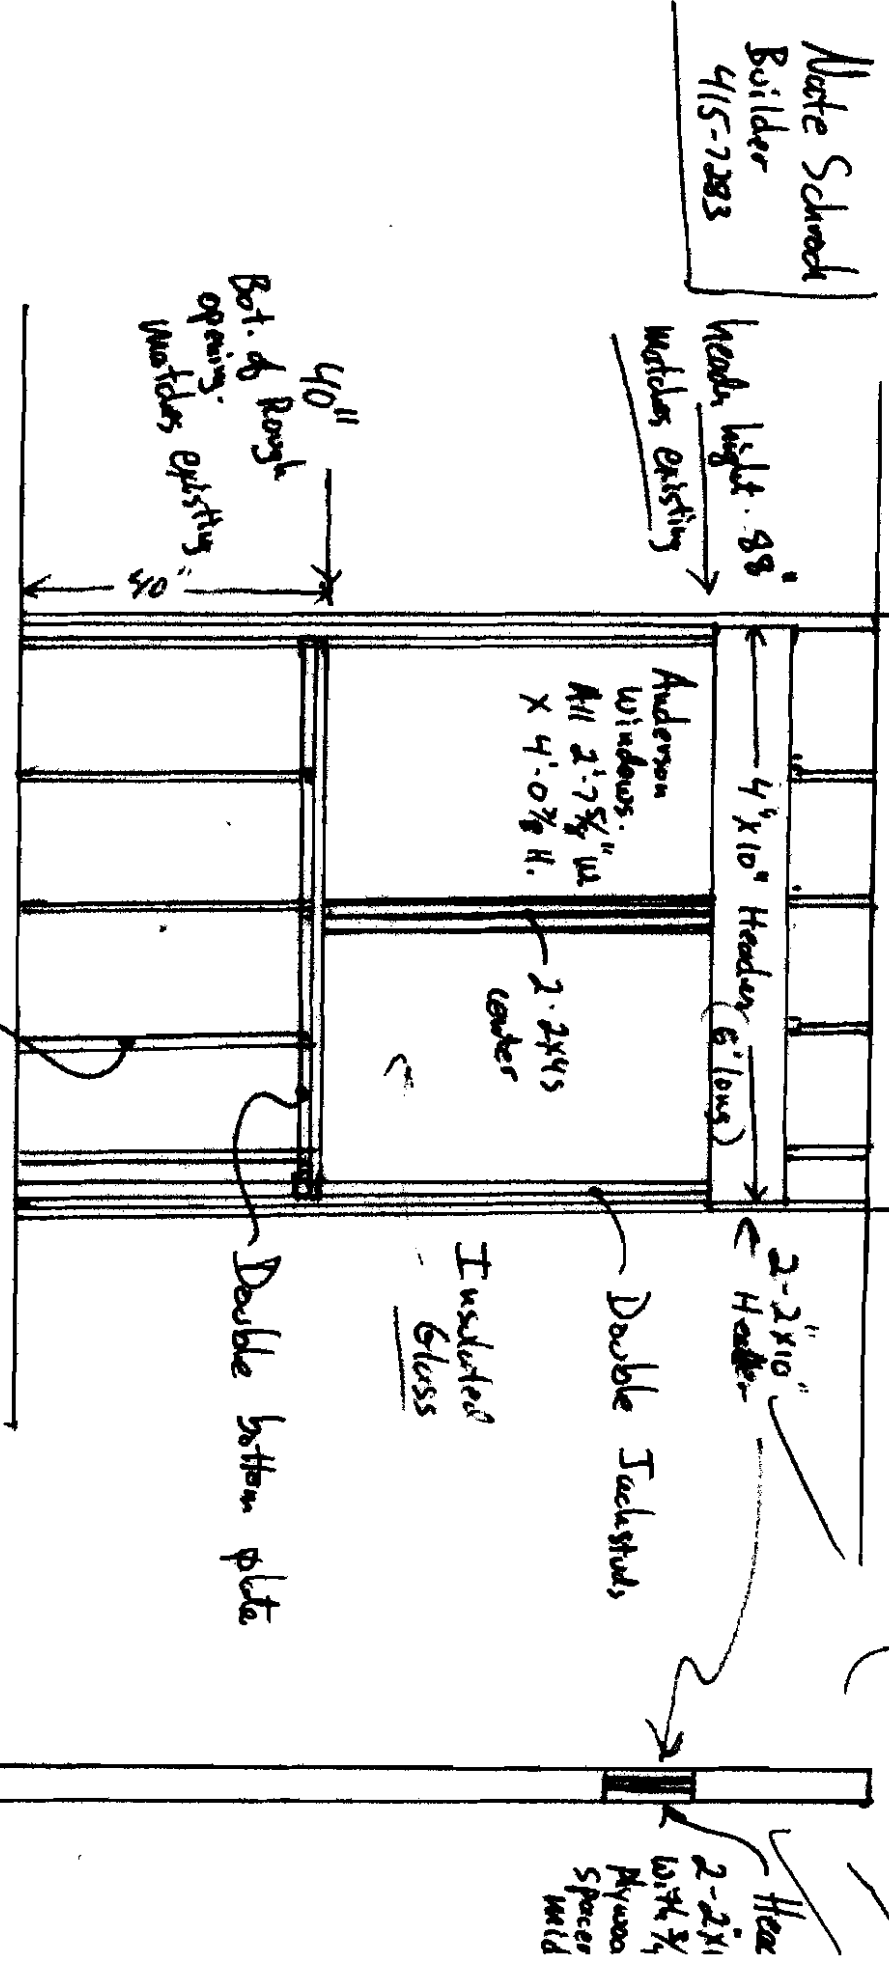 Nate Schrock
Builder
415-7283
header hight. 88"
Matches existing
40"
Bot. of Rough
opening.
Matches existing
40"
Anderson
Windows.
All 2'-7 5/8" W
X 4'-0 7/8 H.
4"x10" Header
(6' long)
2-2x4s
center
2-2"x10"
Header
Double Jackstuds
Insulated
Glass
Double bottom plate
2-2"x1
with 3/4
Plywoo
Spacer